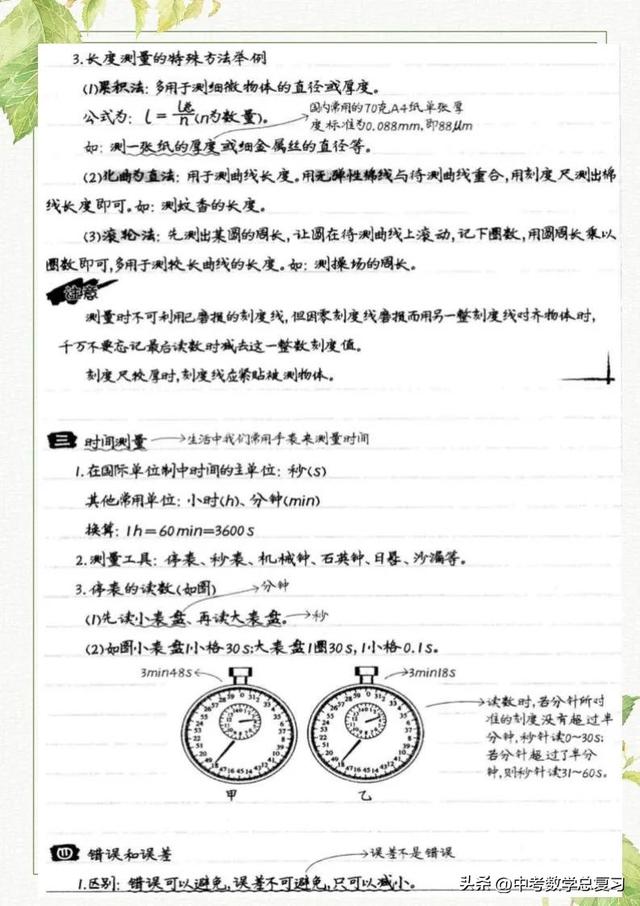 3.长度测量的特殊方法举例
(1)累积法:多用于测细微物体的直径或厚度。
公式为: l = l总/n (n为数量)。
国内常用的70克A4纸单张厚
度标准为0.088mm,即88μm
如:测一张纸的厚度或细金属丝的直径等。
(2)化曲为直法:用于测曲线长度。用无弹性棉线与待测曲线重合,用刻度尺测出棉
线长度即可。如:测蚊香的长度。
(3)滚轮法:先测出某圆的周长,让圆在待测曲线上滚动,记下圈数,用圆周长乘以
圈数即可,多用于测较长曲线的长度。如:测操场的周长。
注意
测量时不可利用已磨损的刻度线,但因零刻度线磨损而用另一整刻度线对齐物体时,
千万不要忘记最后读数时减去这一整数刻度值。
刻度尺较厚时,刻度线应紧贴被测物体。
三 时间测量 →生活中我们常用手表来测量时间
1.在国际单位制中时间的主单位:秒(s)
其他常用单位:小时(h)、分钟(min)
换算:1h=60min=3600s
2.测量工具:停表、秒表、机械钟、石英钟、日晷、沙漏等。
3.停表的读数(如图) 分钟
(1)先读小表盘、再读大表盘。→秒
(2)如图小表盘1小格30s:大表盘1圈30s,1小格0.1s。
3min48s
3min18s
读数时,若分针所对
准的刻度没有超过半
分钟,秒针读0~30s;
若分针超过了半分
钟,则秒针读31~60s。
甲
乙
四 错误和误差 →误差不是错误
1.区别:错误可以避免,误差不可避免,只可以减小。
头条@中考数学总复习